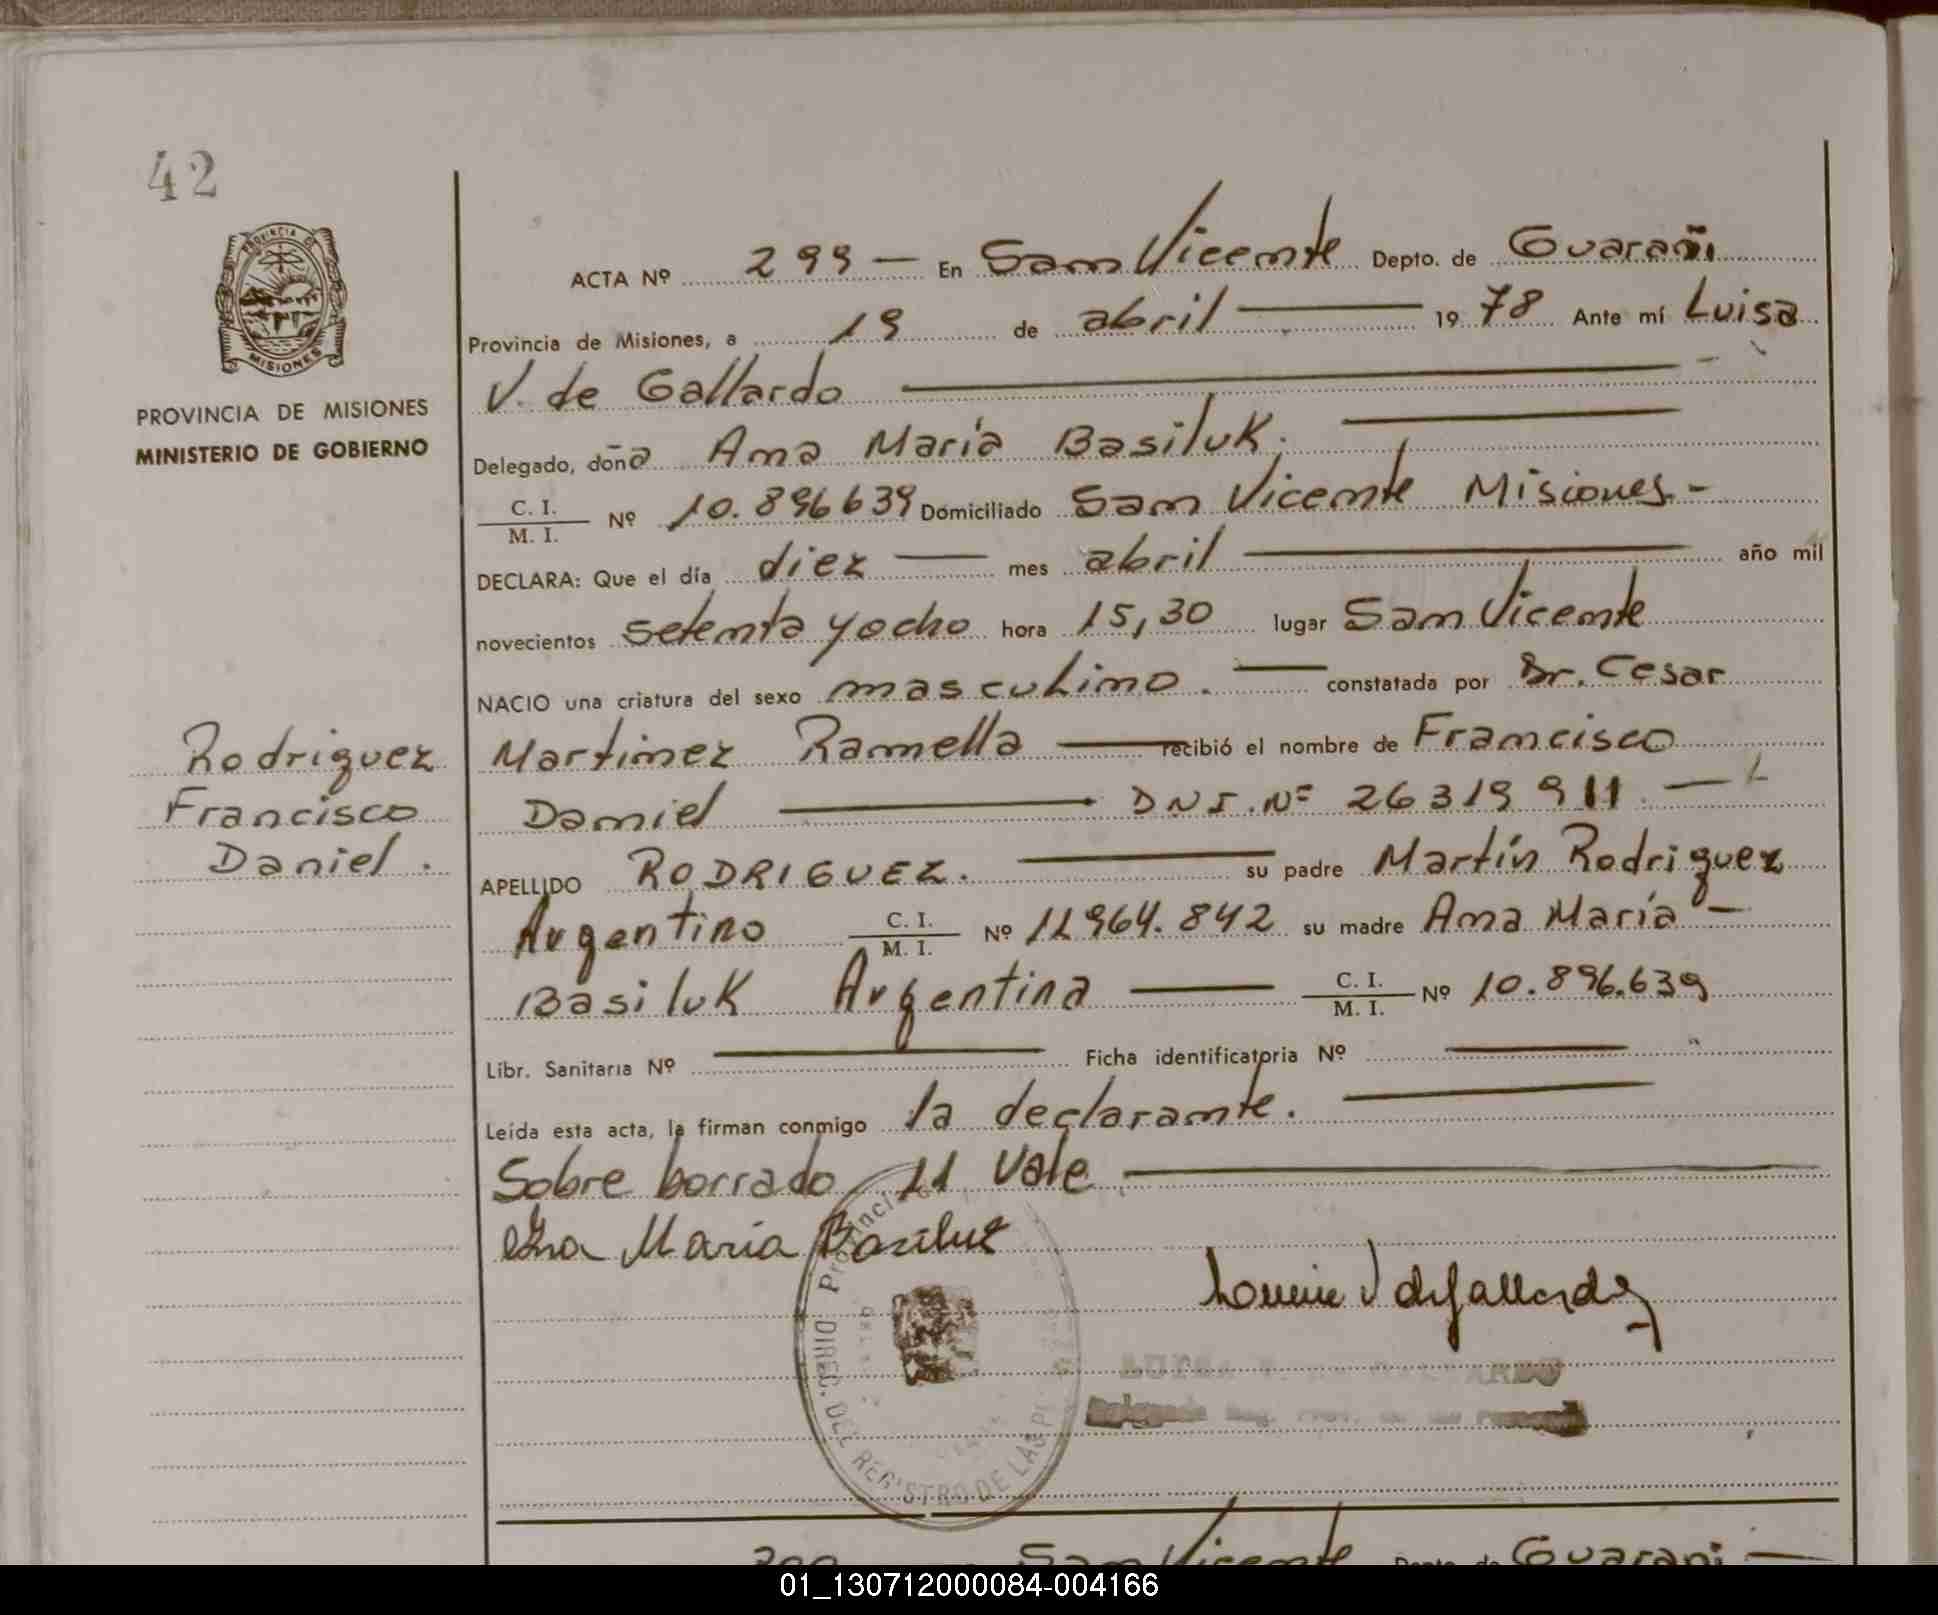 42
PROVINCIA DE
MISIONES
PROVINCIA DE MISIONES
MINISTERIO DE GOBIERNO
Rodriguez
Francisco
Daniel.
ACTA Nº 299 — En San Vicente Depto. de Guarañi
Provincia de Misiones, a 19 de abril — 1978 Ante mí Luisa
V. de Gallardo —
Delegado, doña Ana María Basiluk. —
C. I. / M. I. Nº 10.896639 Domiciliado San Vicente Misiones.-
DECLARA: Que el día diez — mes abril — año mil
novecientos setenta y ocho hora 15,30 lugar San Vicente
NACIO una criatura del sexo masculino. — constatada por Dr. Cesar
Martinez Ramella — recibió el nombre de Francisco
Daniel — DNI. Nº 26319911. —
APELLIDO RODRIGUEZ. — su padre Martín Rodriguez
Argentino C. I. / M. I. Nº 11964.842 su madre Ana María —
Basiluk Argentina — C. I. / M. I. Nº 10.896.639
Libr. Sanitaria Nº — Ficha identificatoria Nº —
Leída esta acta, la firman conmigo la declarante. —
Sobre borrado 11 Vale —
Ana María Basiluk
DIREC. DEL REGISTRO DE LAS
300 — San Vicente Depto. de Guarani —
01_130712000084-004166